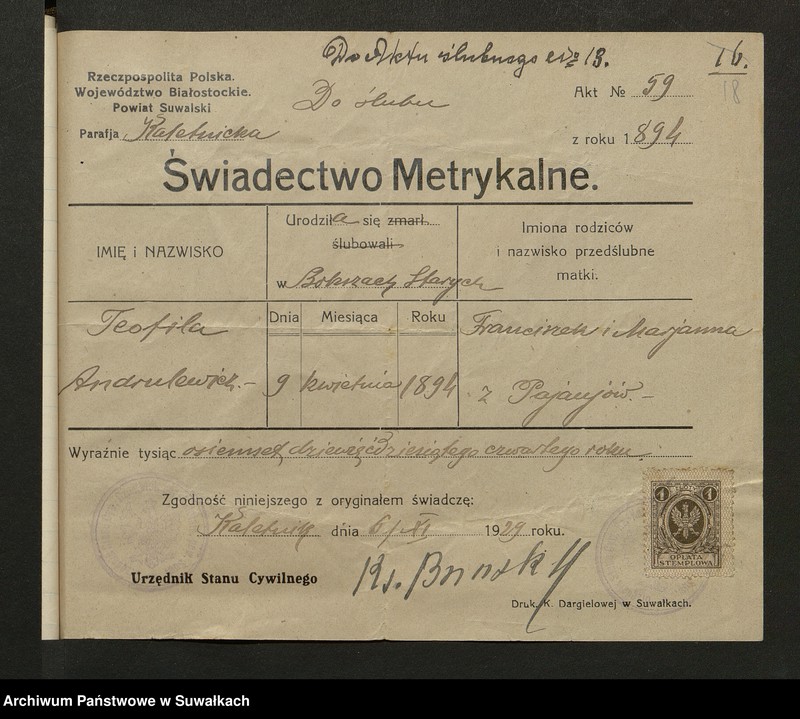 Do Aktu ślubnego No 13.
16.
18
Rzeczpospolita Polska.
Województwo Białostockie.
Powiat Suwalski
Parafja Kaletnicka
Do ślubu
Akt № 59
z roku 1894
Świadectwo Metrykalne.
IMIĘ i NAZWISKO
Urodziła się zmarł
ślubowali
w Bokszach Starych
Imiona rodziców
i nazwisko przedślubne
matki.
Dnia Miesiąca Roku
Teofila
Andrulewicz.-
9 kwietnia 1894
Franciszek i Marjanna
z Pajanjów.-
Wyraźnie tysiąc osiemset dziewięćdziesiątego czwartego roku.
Zgodność niniejszego z oryginałem świadczę:
Kaletnik dnia 6/XI 1929 roku.
Urzędnik Stanu Cywilnego
Ks.
Druk. K. Dargielowej w Suwałkach.
1 ZŁOTY 1
OPŁATA
STEMPLOWA
Archiwum Państwowe w Suwałkach